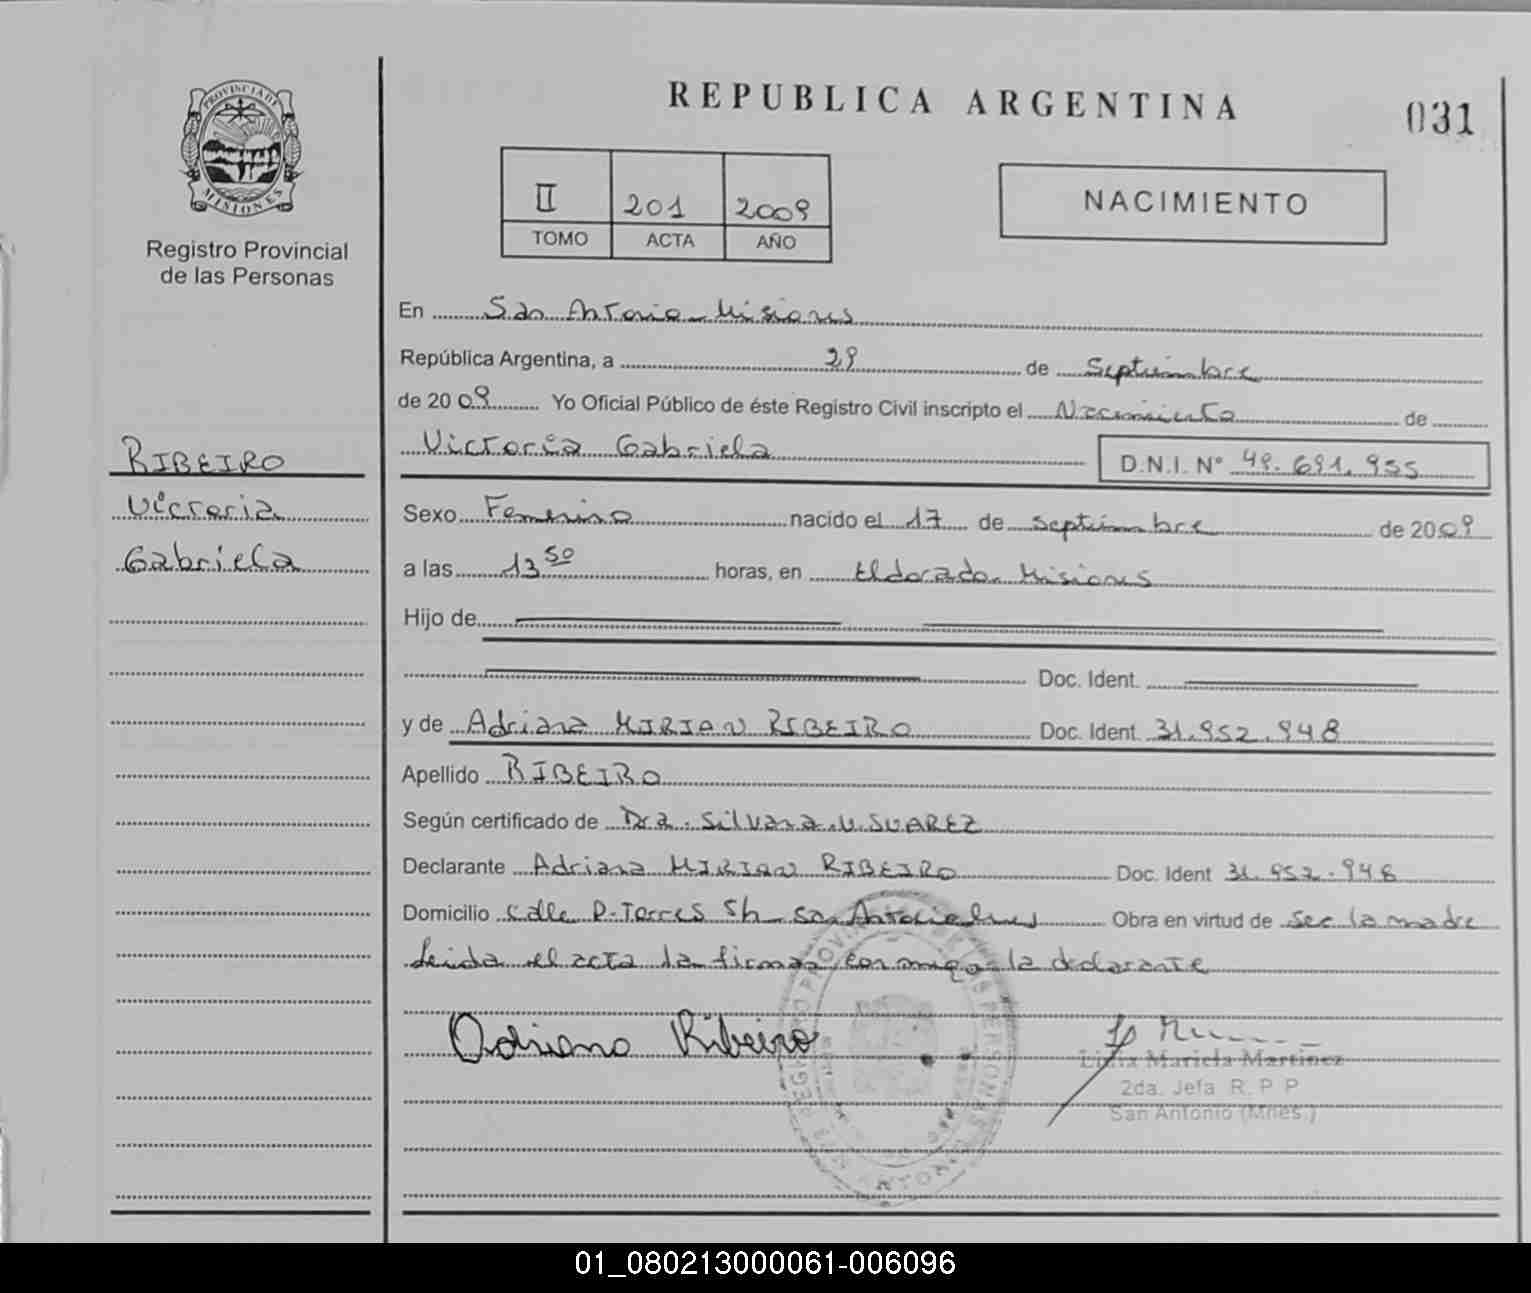 REPUBLICA ARGENTINA
031
PROVINCIA DE
MISIONES
Registro Provincial
de las Personas
II 201 2009
TOMO ACTA AÑO
NACIMIENTO
En San Antonio Misiones
República Argentina, a 29 de Septiembre
de 2009 Yo Oficial Público de éste Registro Civil inscripto el Nacimiento de
Victoria Gabriela
D.N.I. Nº 49.691.955
RIBEIRO
Victoria
Gabriela
Sexo Femenino nacido el 17 de septiembre de 2009
a las 13 50 horas, en Eldorado Misiones
Hijo de
Doc. Ident.
y de Adriana MIRIAN RIBEIRO Doc. Ident. 31.952.948
Apellido RIBEIRO
Según certificado de Dra. Silvana V. SUAREZ
Declarante Adriana MIRIAN RIBEIRO Doc. Ident 31.952.948
Domicilio Calle P. Torres S/n San Antonio Mnes Obra en virtud de ser la madre
Leida el acta la firma conmigo la declarante
Adriana Ribeiro
Mariela Martinez
2da. Jefa R. P. P
San Antonio (Mnes.)
01_080213000061-006096